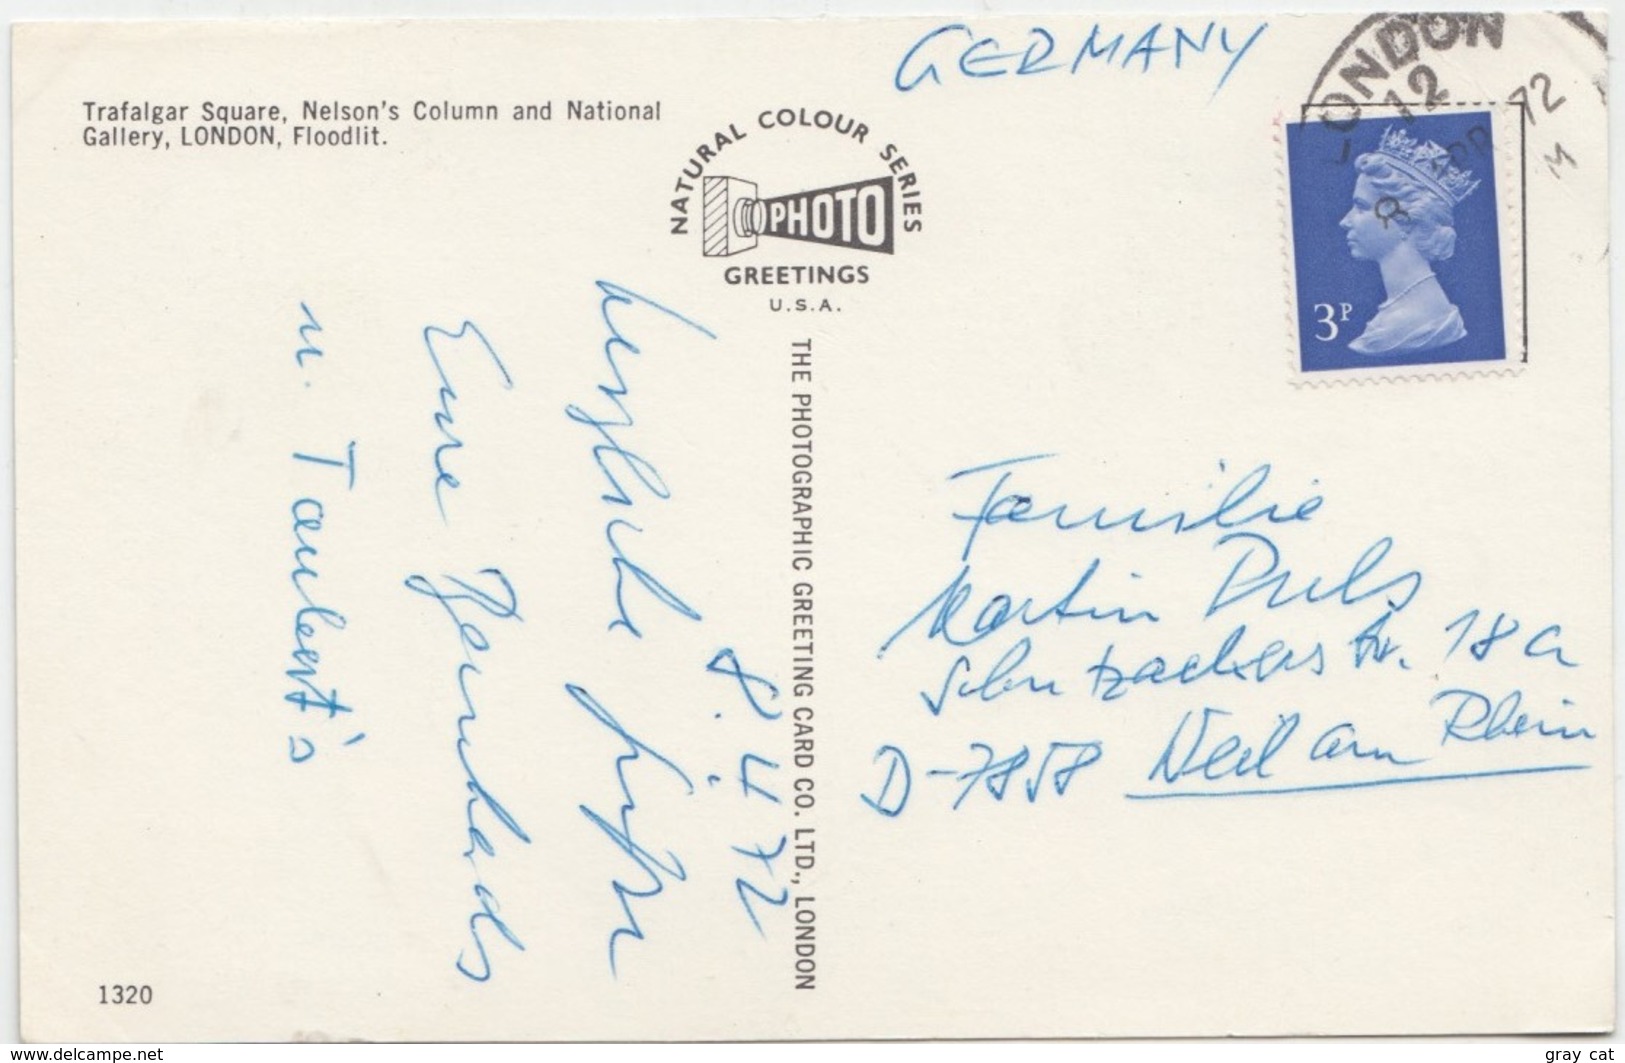 GERMANY
LONDON
12
8 APR 72
M
Trafalgar Square, Nelson's Column and National
Gallery, LONDON, Floodlit.
NATURAL COLOUR SERIES
PHOTO
GREETINGS
U.S.A.
3P
THE PHOTOGRAPHIC GREETING CARD CO. LTD., LONDON
8.4.72
Herzliche Grüße
Eure
u. Taubert's
Familie
Martin
18a
D-7858 Weil am Rhein
1320
www.delcampe.net
gray cat